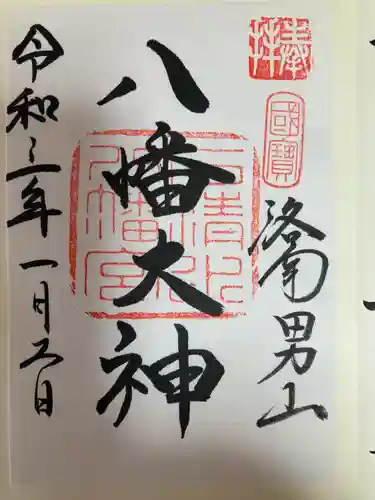 奉拝
國寶
洛南男山
八幡大神
石清水八幡宮
令和三年一月六日